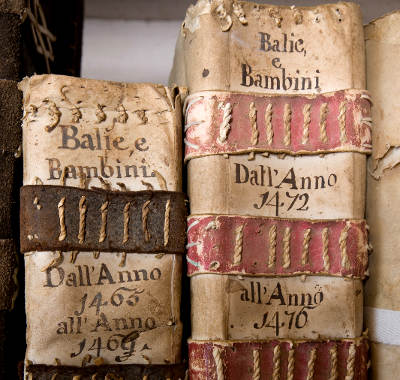 Balie, e
Bambini
Dall'Anno
1465
all'Anno
1469.
Balie,
e
Bambini
Dall'Anno
1472
all'Anno
1476